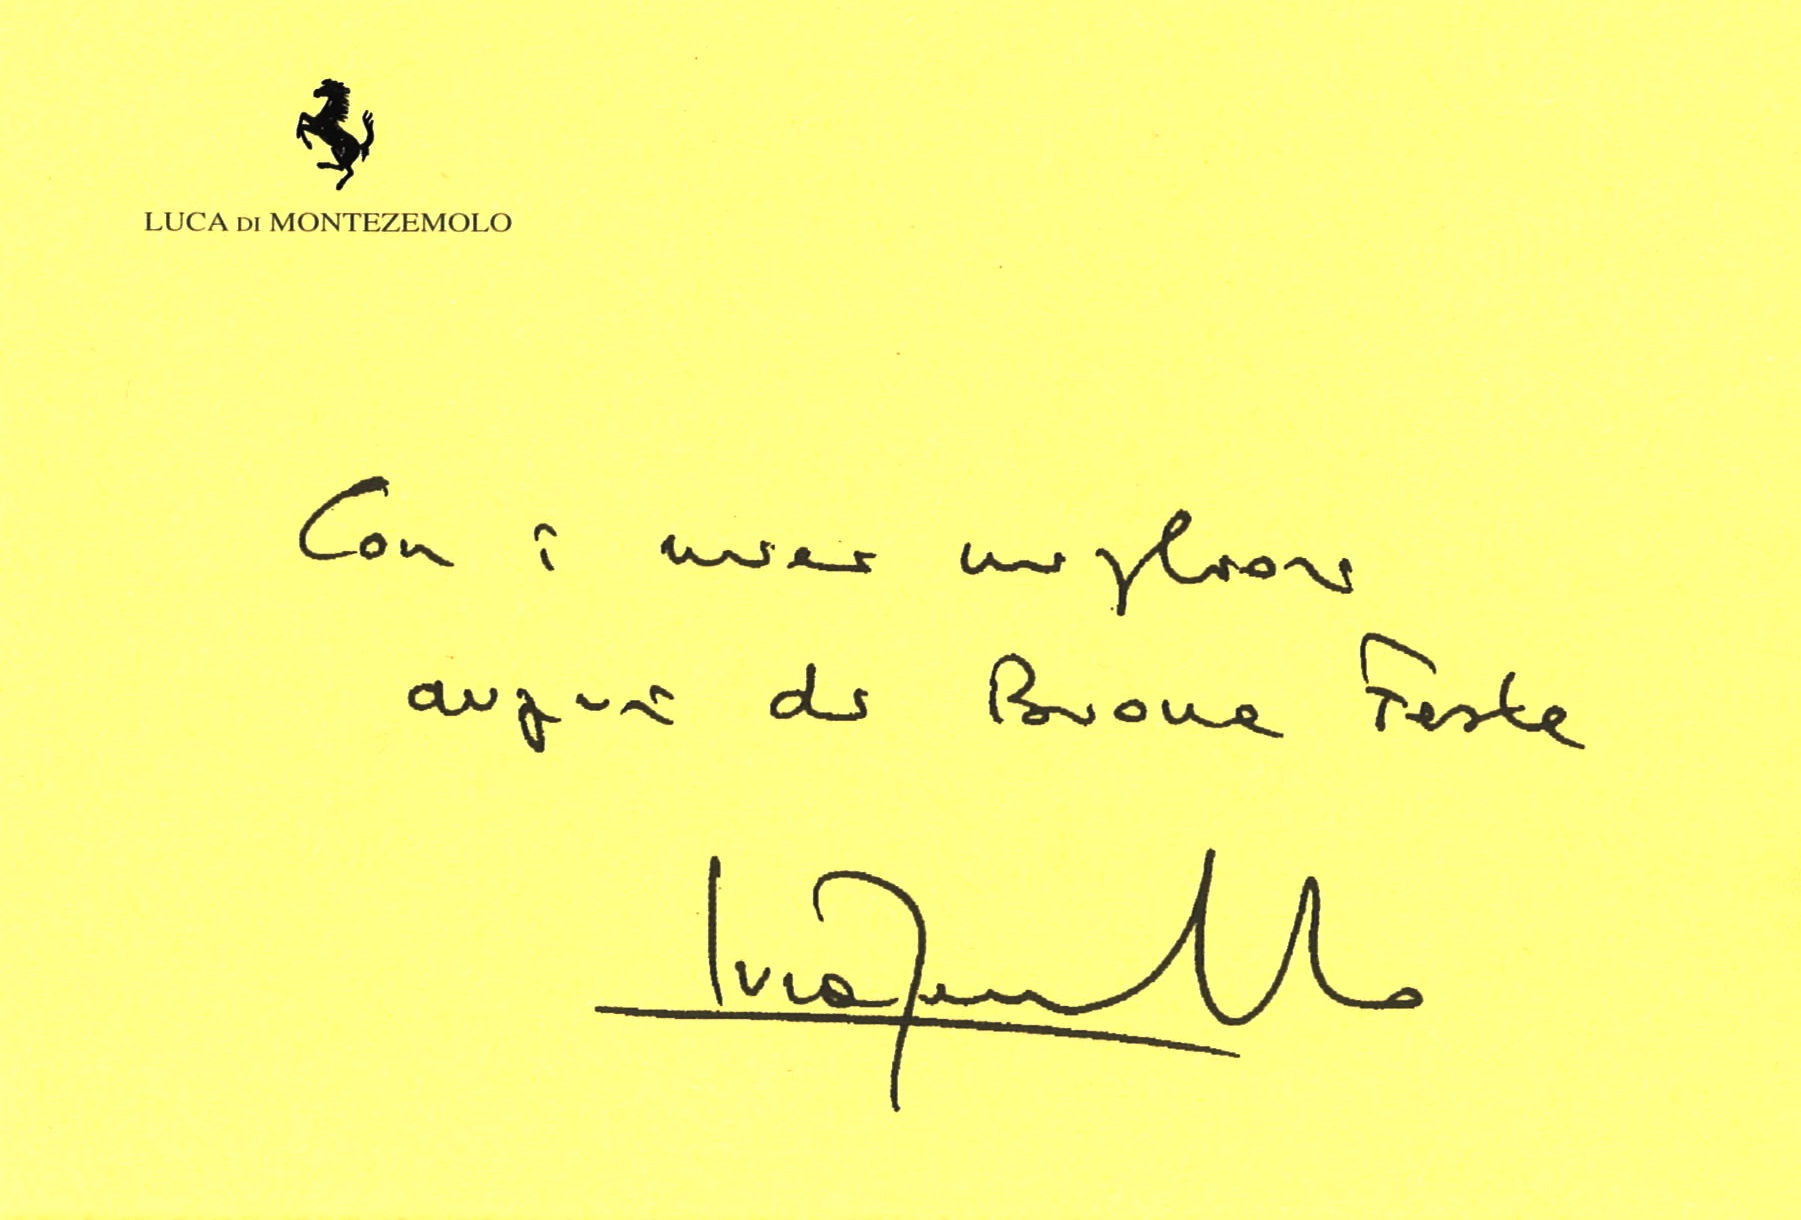 LUCA DI MONTEZEMOLO
Con i miei migliori
auguri di Buone Feste